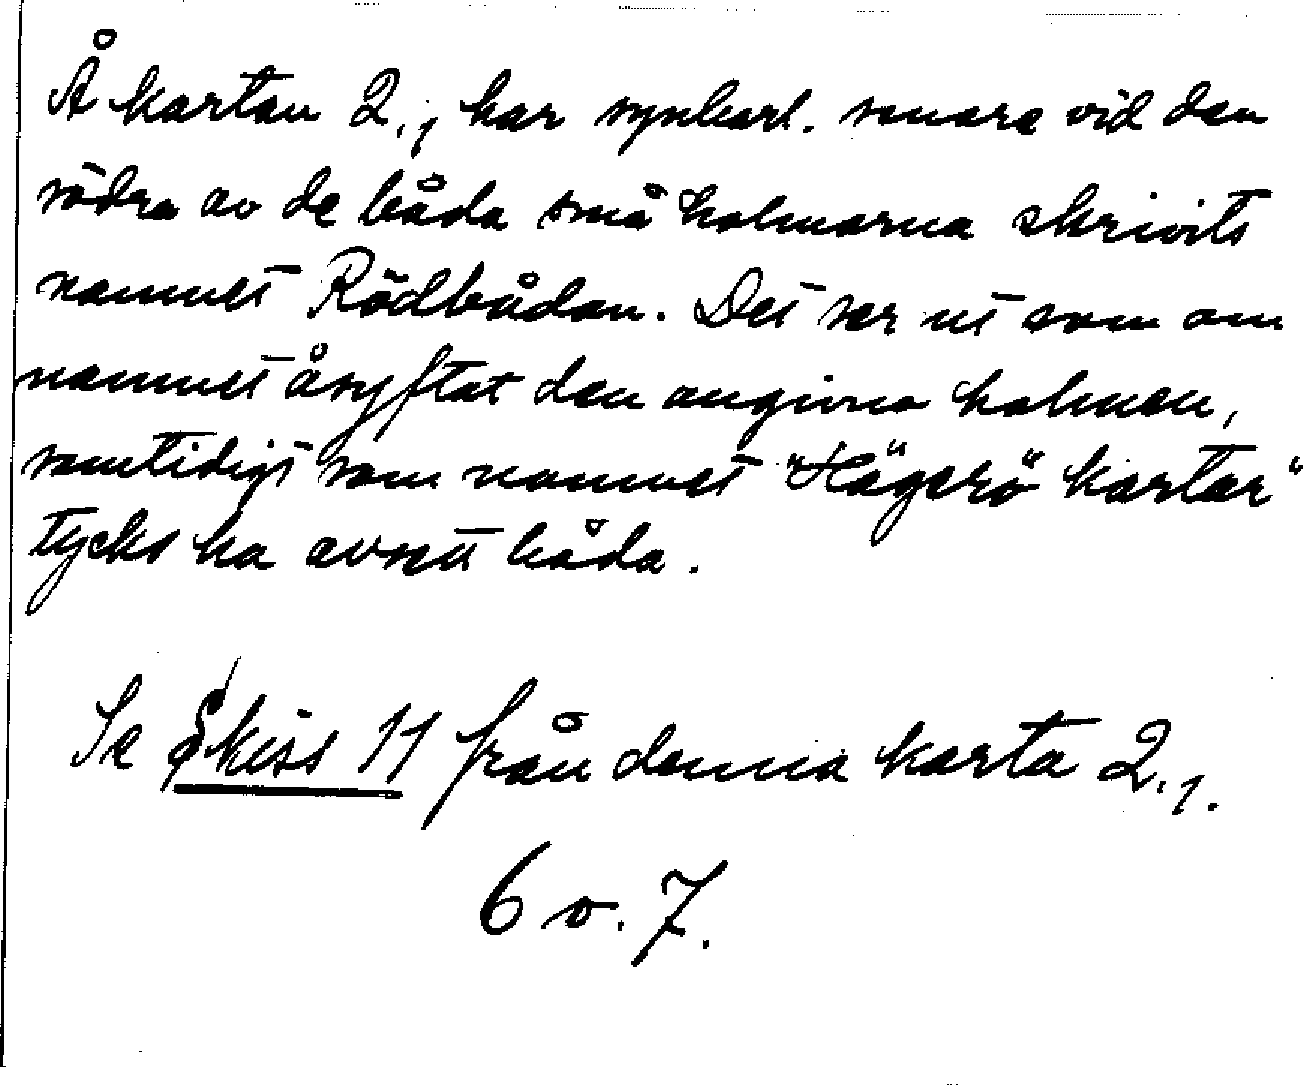 Å kartan 2.1 har synbarl. senare vid den
södra av de båda små holmarna skrivits
namnet Rödbådan. Det ser ut som om
namnet åsyftat den angivna holmen,
samtidigt som namnet "Hägerö kartar"
tycks ha avsett båda.
Se Skiss 11 från denna karta 2.1.
6 o. 7.